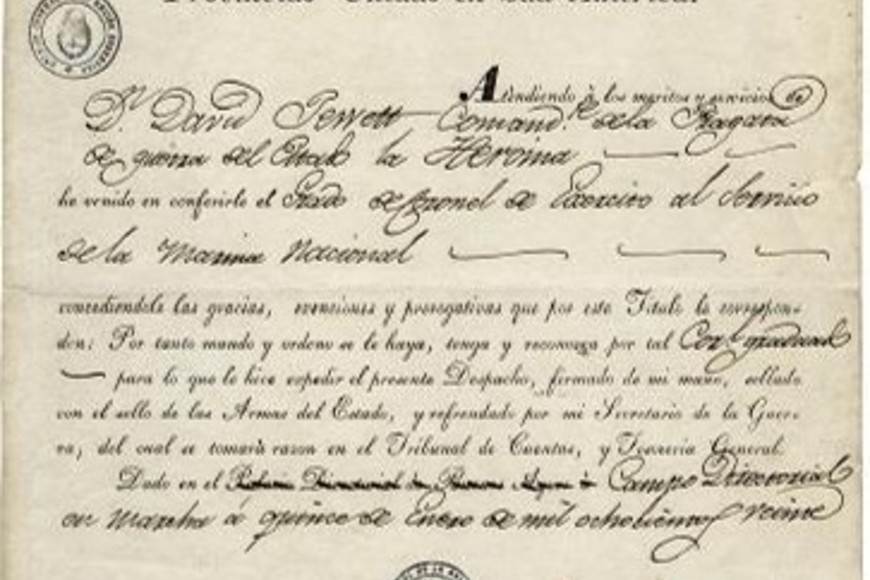 Provincias Unidas en Sud América.
Atendiendo à los meritos y servicios de
Dn. David Jewett Comandte. de la Fragata
de guerra del Estado la Heroina
he venido en conferirle el Grado de Coronel de Exercito al Servicio
de la Marina Nacional
concediendole las gracias, exenciones y prerogativas que por este Titulo le correspon-
den: Por tanto mando y ordeno se le haya, tenga y reconozca por tal Corl. graduado
para lo que le hice expedir el presente Despacho, firmado de mi mano, sellado
con el sello de las Armas del Estado, y refrendado por mi Secretario de la Guer-
ra, del cual se tomarà razon en el Tribunal de Cuentas, y Tesoreria General.
Dado en el Campo Directorial
en Marcha à quince de Enero de mil ochocientos veinte